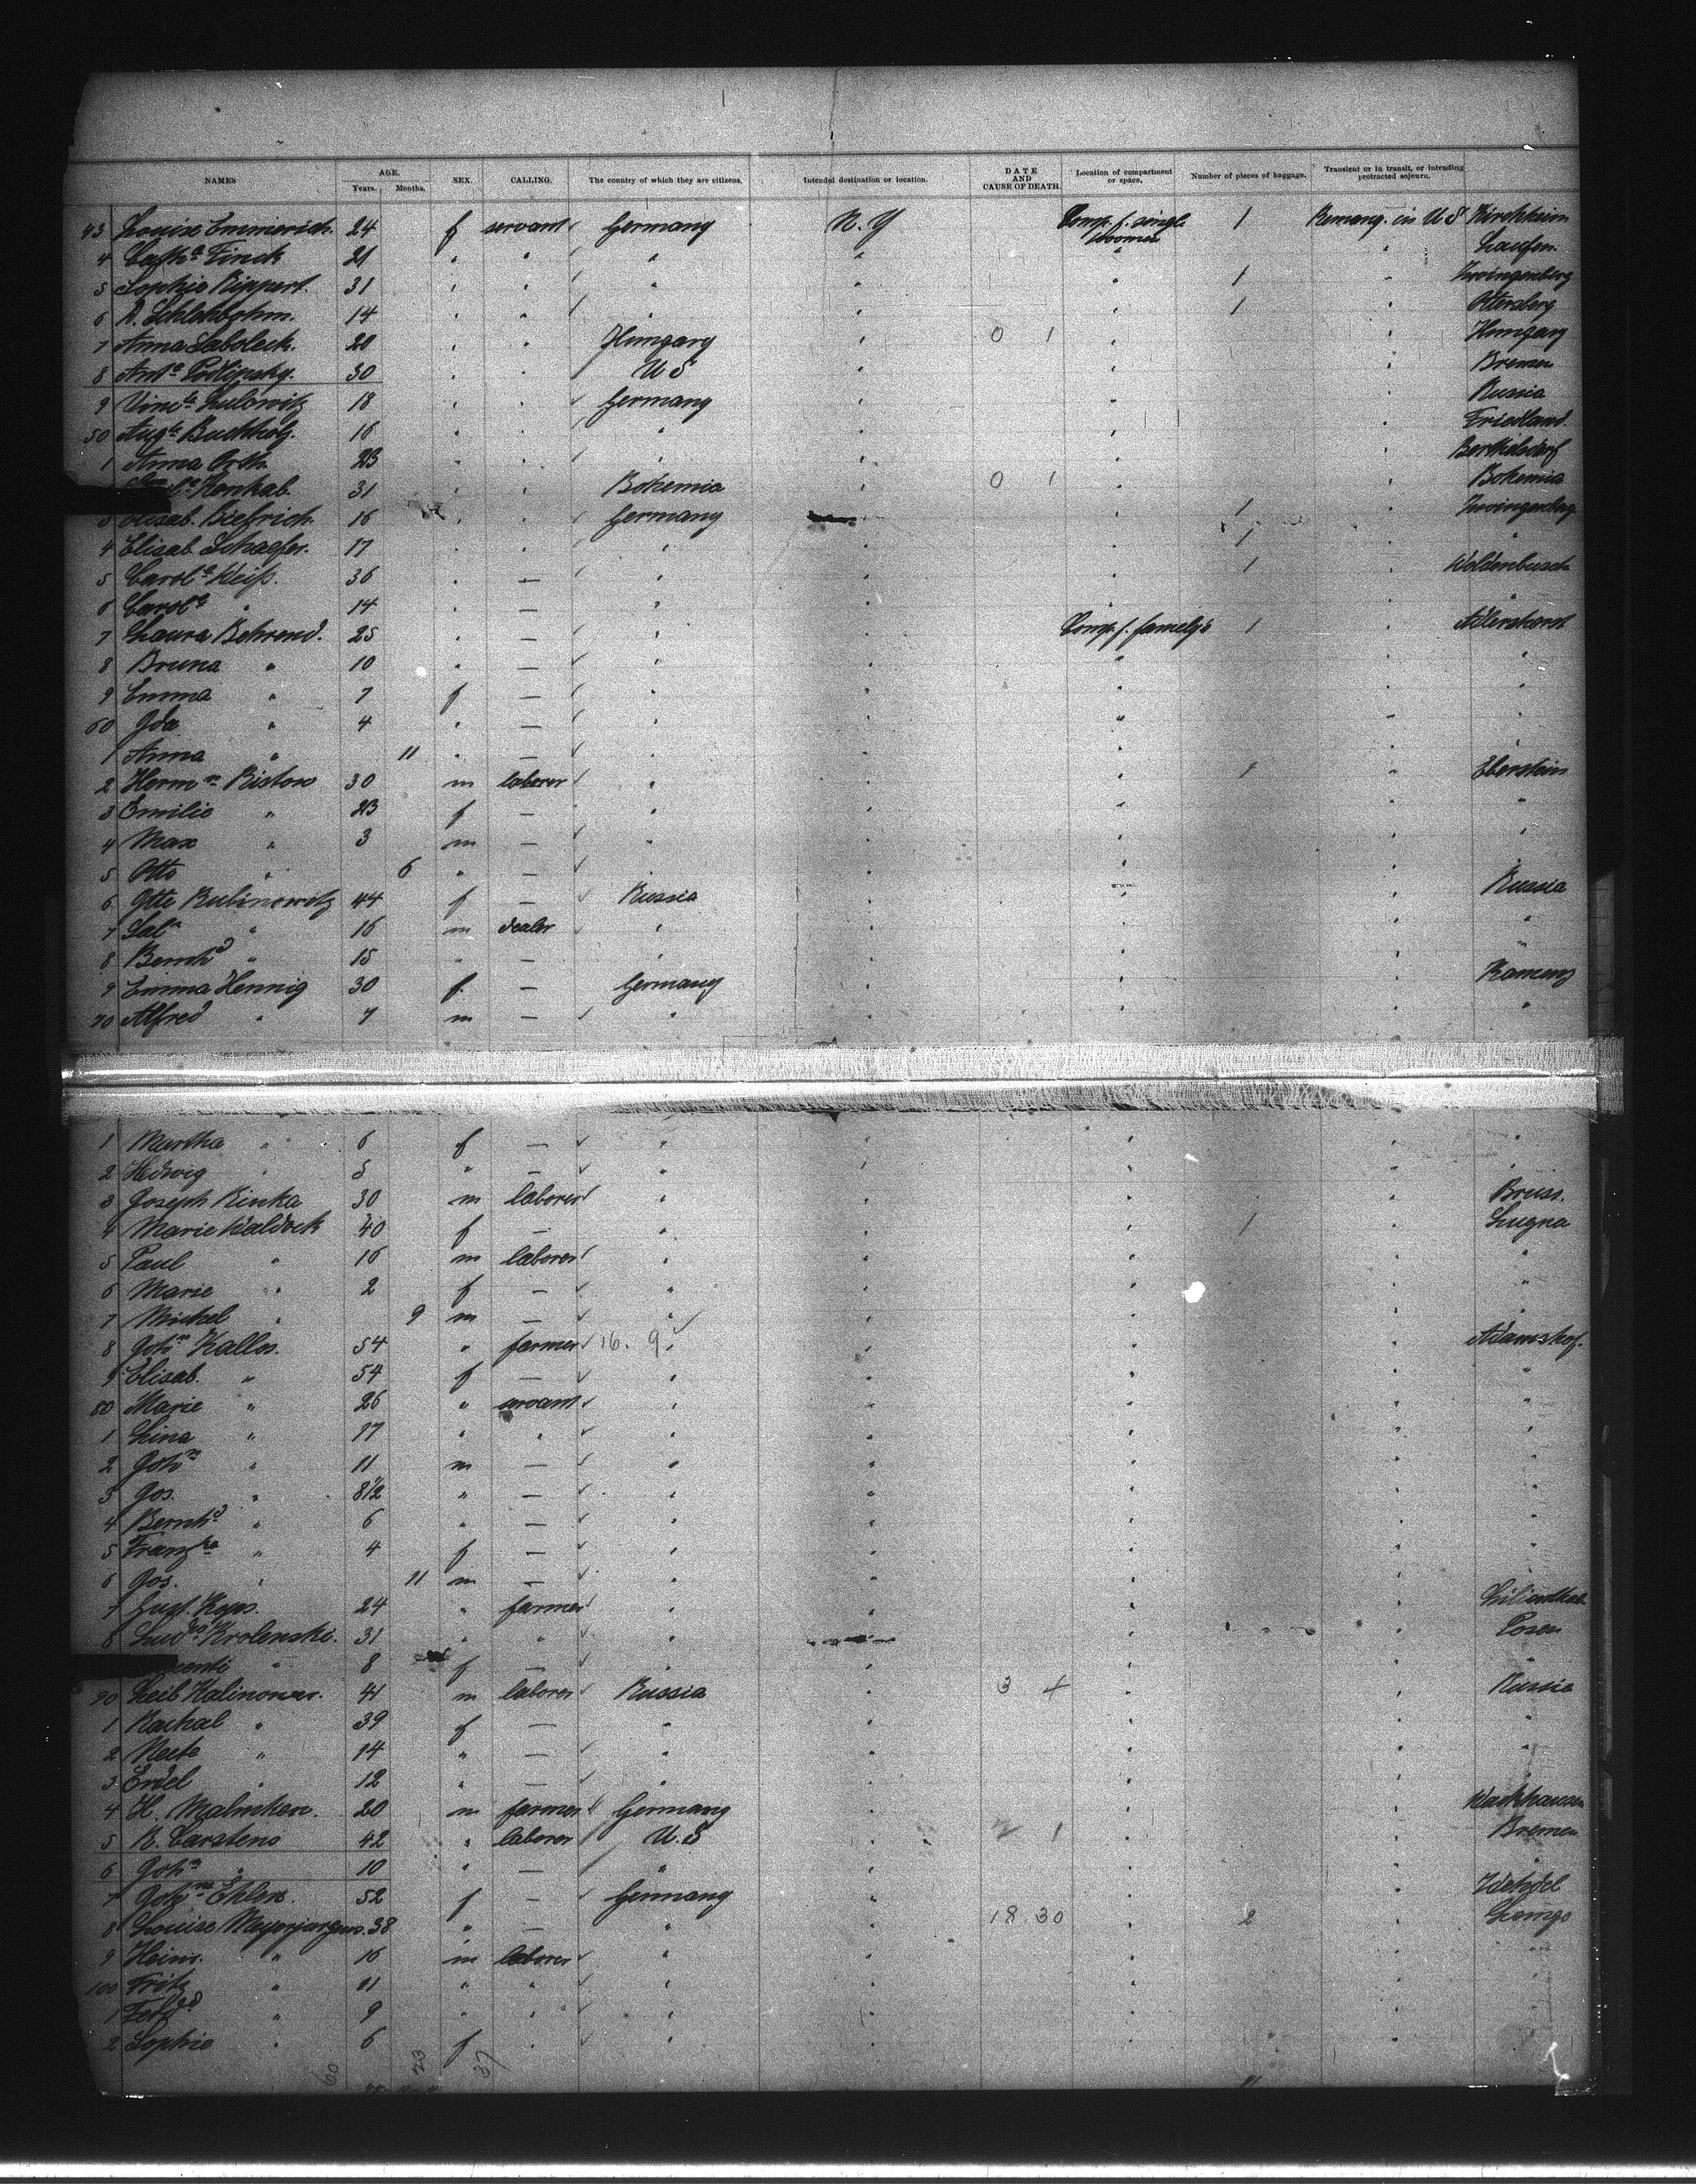 NAMES AGE. Years. Months. SEX. CALLING. The country of which they are citizens. Intended destination or location. DATE AND CAUSE OF DEATH. Location of compartment or space. Number of pieces of baggage. Transient or in transit, or intending protracted sojourn.
43 Louise Emmerich. 24 f servant Germany N.Y Comp. f. single woomen 1 Remang. in U S Kirchheim
4 Cath.a Finck 21 " " " " " " Laufen.
5 Sophie Rippert. 31 " " " " " 1 " Zwingenberg
6 14 " " " " " 1 " Ottersberg
7 Anna 20 " " Hungary " 0 1 " " Hungary
8 30 " " U S " " " Bremen
9 18 " " Germany " " " Russia
50 Aug.te Buchholz. 16 " " " " " " Friedland.
1 Anna Orth. 23 " " " " " " Berthelsdorf
31 " " Bohemia " 0 1 " " Bohemia
3 Elisab. 16 " " Germany " 1 " Zwingenberg
4 Elisab. Schaefer. 17 " " " " " 1 " "
5 Carol.e Weiß. 36 " — " " " 1 "
6 Carol.e " 14 " — " " " " "
7 Laura Behrend. 25 " — " " Comp. f. famely's 1 " Adlershorst
8 Bruna " 10 " — " " " " "
9 Emma " 7 f — " " " " "
60 Ida " 4 " — " " " " "
1 Anna " 11 " — " " " " "
2 Herm.n Ristow 30 m laborer " " " 1 " Eberstein
3 Emilie " 23 f — " " " " "
4 Max " 3 m — " " " " "
5 Otto " 6 " — " " " " "
6 Gitte Rubinowitz 44 f — Russia " " " Russia
7 Sal. " 16 m dealer " " " " "
8 Bernh.d " 15 " — " " " " "
9 Emma Hennig 30 f. — Germany " " " Kamenz
70 Alfred " 7 m — " " " " "
1 Martha " 6 f — " " " " "
2 Hedwig " 5 " — " " " " "
3 Joseph Rinka 30 m laborer " " " "
4 Marie Waldock 40 f — " " " 1 " Lugna
5 Paul " 16 m laborer " " " " "
6 Marie " 2 f — " " " " "
7 Michel " 9 m — " " " " "
8 Joh.n Kallos. 54 " farmer 16. 9. " " " Adamshof.
9 Elisab. " 54 f — " " " " "
80 Marie " 26 " servant " " " " "
1 Lina " 17 " " " " " " "
2 Joh.n " 11 m — " " " " "
3 Jos. " 8 1/2 " — " " " " "
4 Bernh.d " 6 " — " " " " "
5 Franz.ka " 4 f — " " " " "
6 Jos. " 11 m — " " " " "
7 Gust. 24 " farmer " " " " Lilienthal
8 Krolenski. 31 " " " " " " Posen
" 8 f — " " " " "
90 Leib 41 m laborer Russia " 3 4 " " Russia
1 Rachal " 39 f — " " " " "
2 " 14 " — " " " " "
3 Endel " 12 " — " " " " "
4 H. Malmken. 20 m farmer Germany " " "
5 R. Carstens 42 " laborer U.S " 2 1 " " Bremen
6 Joh.n " 10 " — " " " " "
7 Joh.na Ehlers. 52 f — Germany " " "
8 Louise Meyerjurgens. 38 " — " " 18 30 " 2 " Lemgo
9 Heinr. " 16 m laborer " " " " "
100 Fritz " 11 " " " " " " "
1 Ferd.d " 9 " " " " " " "
2 Sophie " 6 f " " " " " "
60 23 37